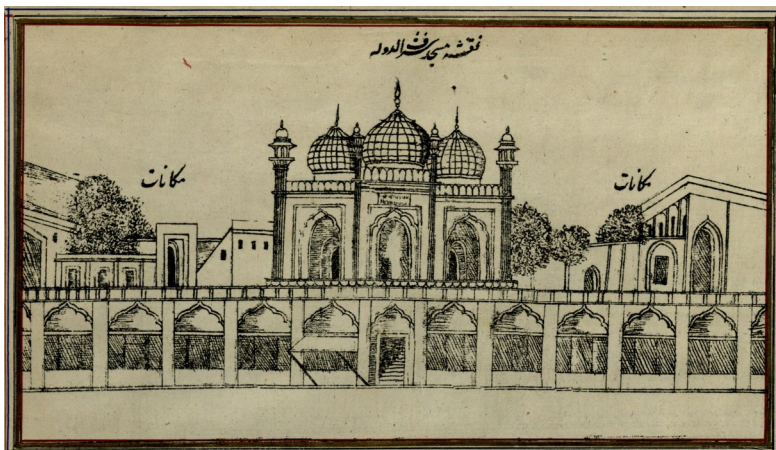 نقشہ مسجد شرف الدولہ
مکانات
مکانات